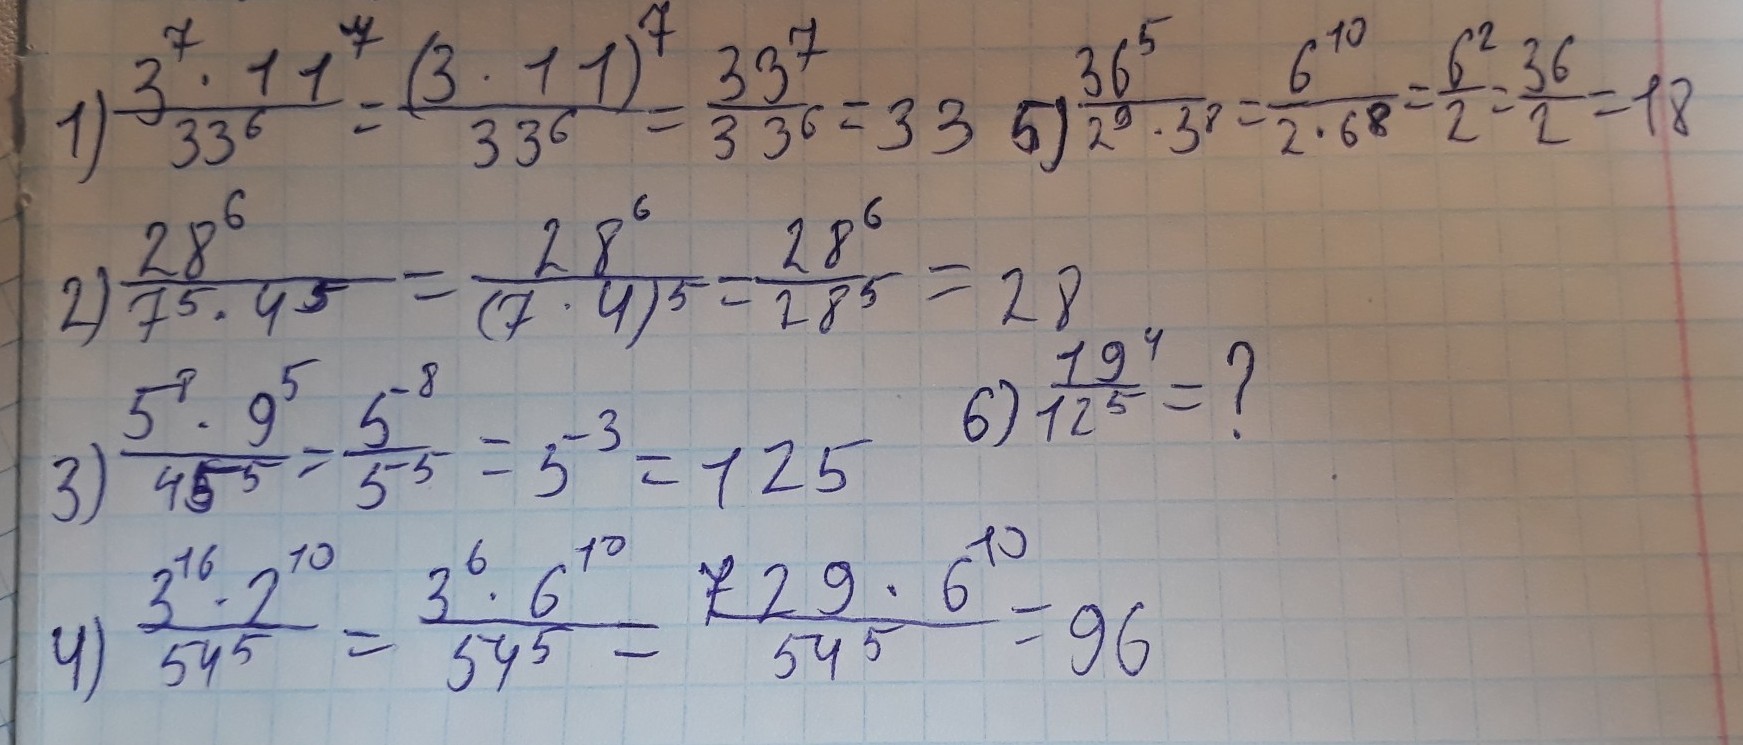 1) 3^7 · 11^7 / 33^6 = (3 · 11)^7 / 33^6 = 33^7 / 33^6 = 33
5) 36^5 / 2^9 · 3^8 = 6^10 / 2 · 6^8 = 6^2 / 2 = 36 / 2 = 18
2) 28^6 / 7^5 · 4^5 = 28^6 / (7 · 4)^5 = 28^6 / 28^5 = 28
3) 5^8 · 9^5 / 45^5 = 5^8 / 5^5 = 5^3 = 125
6) 19^4 / 12^5 = ?
4) 3^16 · 2^10 / 54^5 = 3^6 · 6^10 / 54^5 = 729 · 6^10 / 54^5 = 96